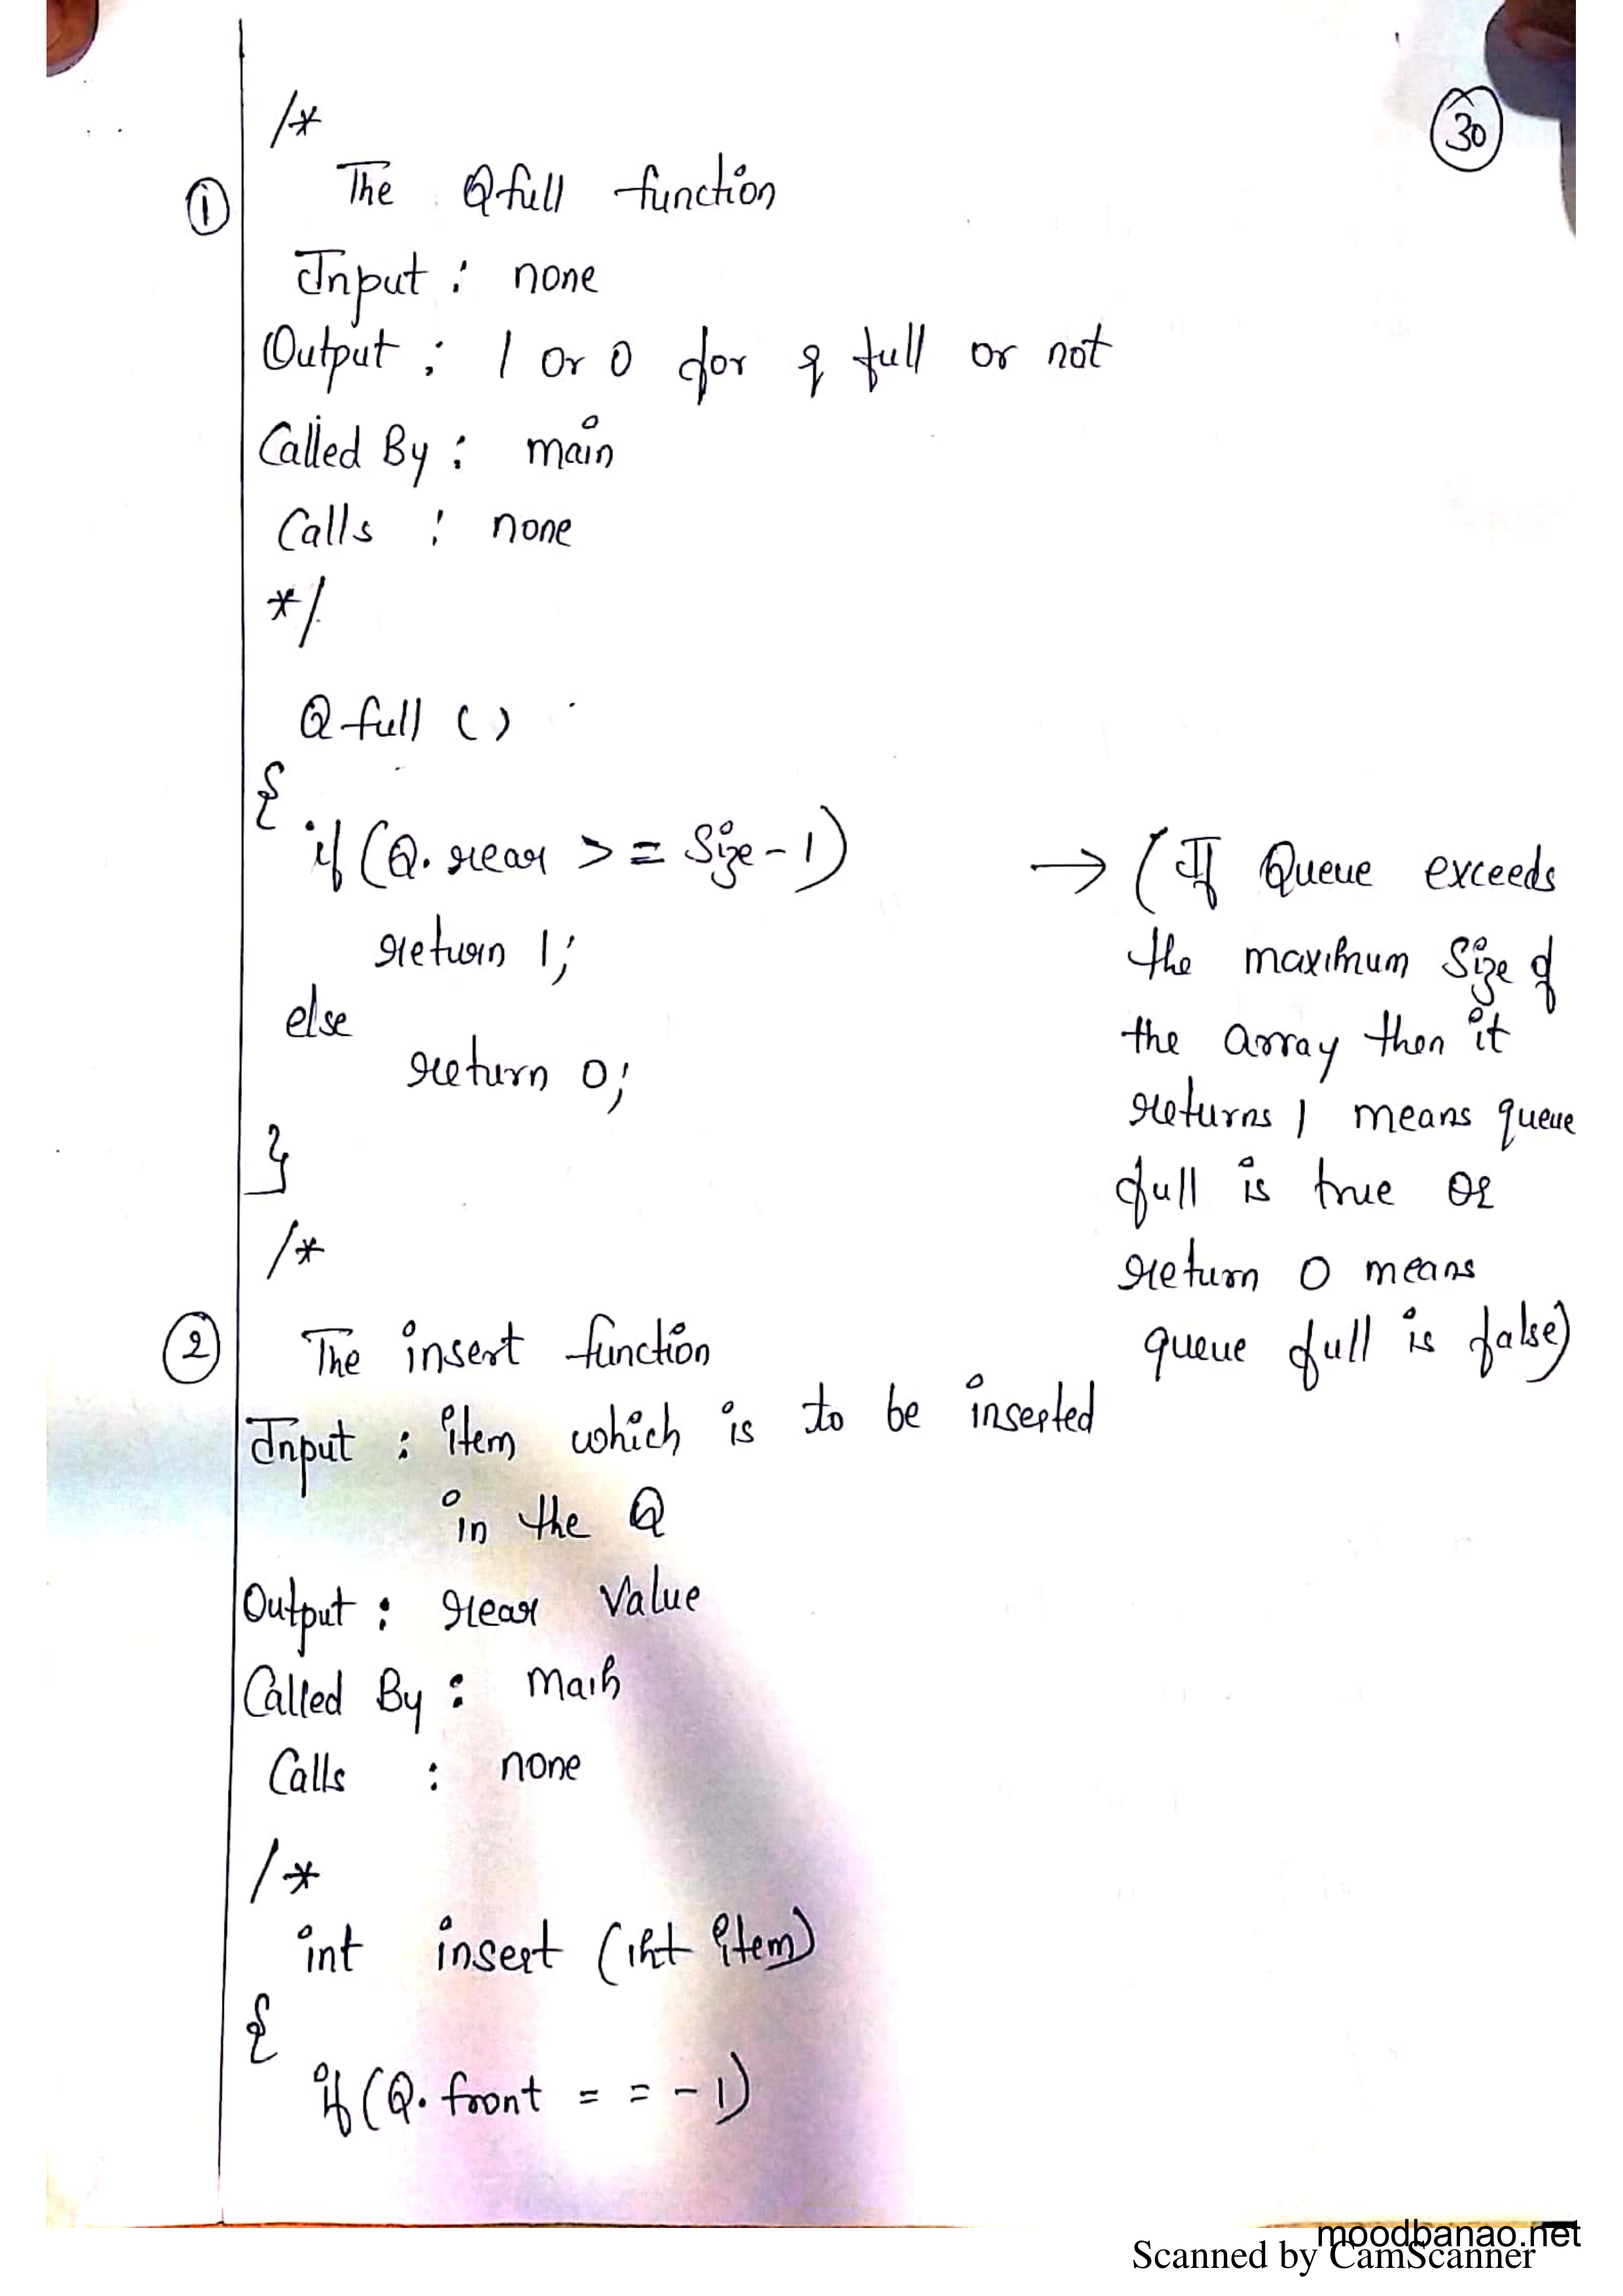 30
/*
① The Qfull function
Input : none
Output : 1 or 0 for q full or not
Called By : main
Calls : none
*/
Qfull ()
{
if (Q.rear >= Size-1)
return 1;
else
return 0;
}
→ (If Queue exceeds
the maximum Size of
the array then it
returns 1 means queue
full is true or
return 0 means
queue full is false)
/*
② The insert function
Input : item which is to be inserted
in the Q
Output : rear Value
Called By : Main
Calls : none
/*
int insert (int item)
{
if (Q.front = = -1)
moodbanao.net
Scanned by CamScanner